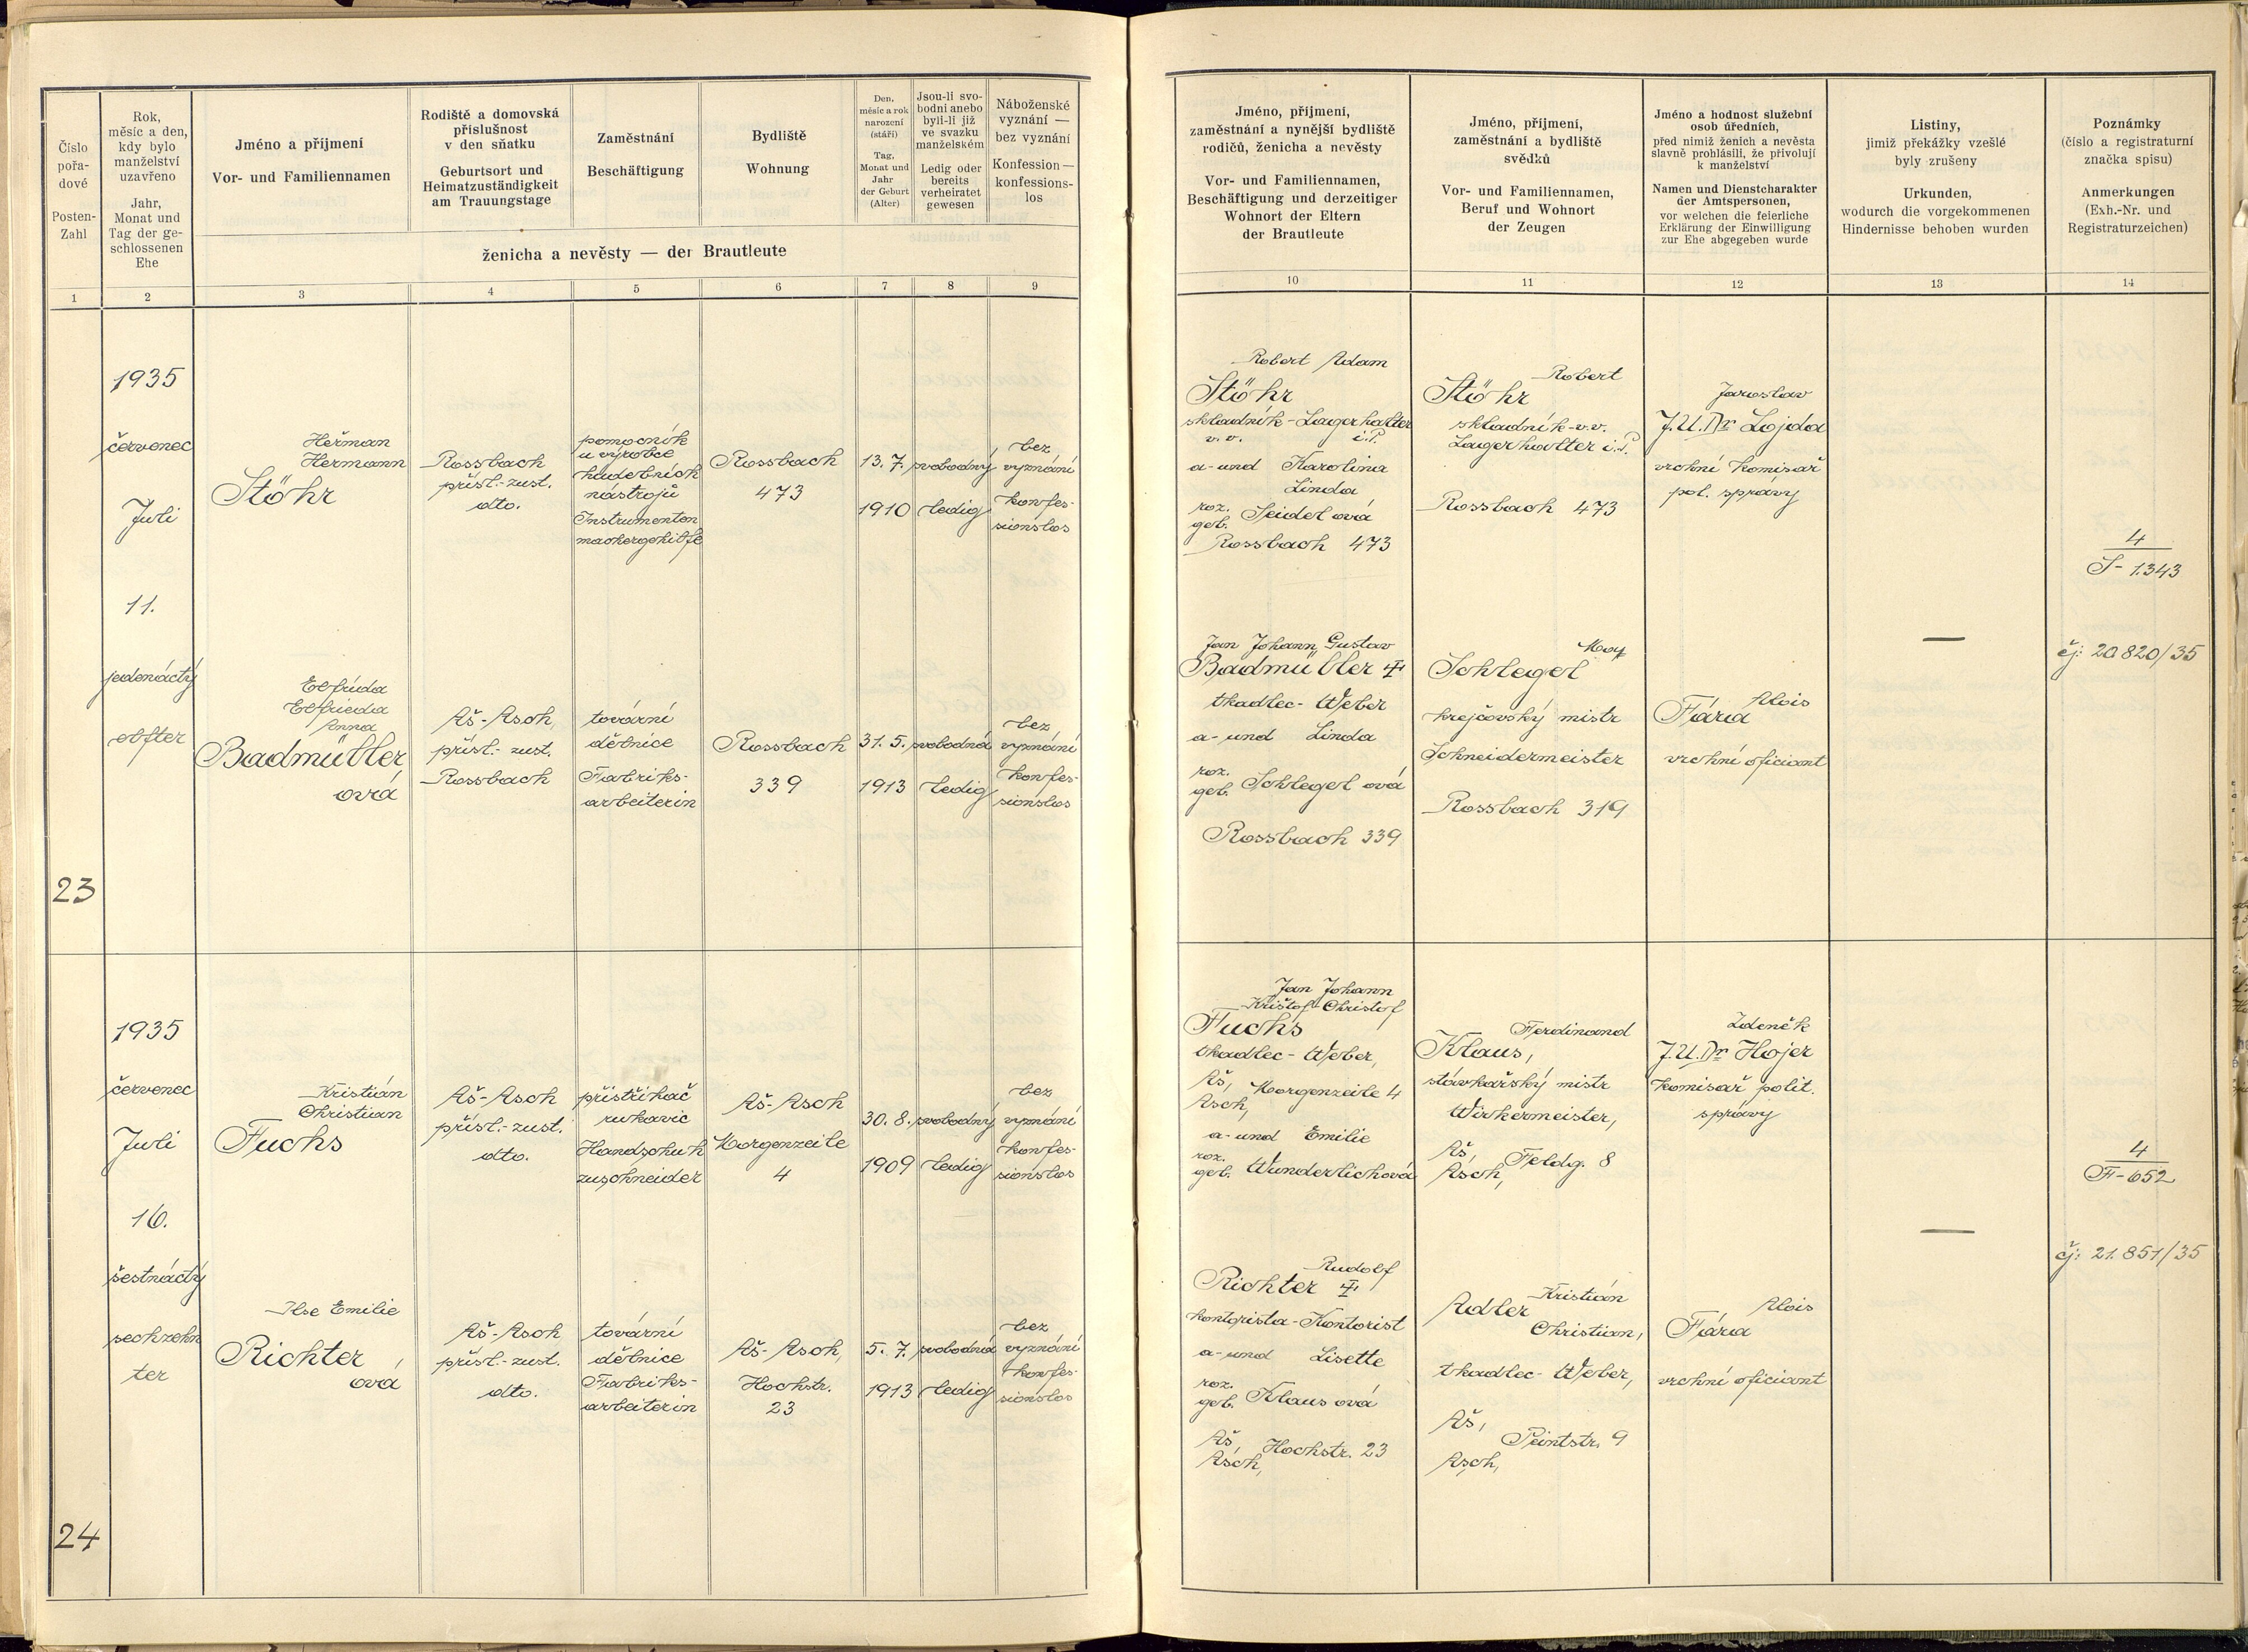 Číslo pořa-dové
Posten-Zahl
Rok,
měsíc a den,
kdy bylo
manželství
uzavřeno
Jahr,
Monat und
Tag der ge-
schlossenen
Ehe
Jméno a příjmení
Vor- und Familiennamen
Rodiště a domovská
příslušnost
v den sňatku
Geburtsort und
Heimatzuständigkeit
am Trauungstage
Zaměstnání
Beschäftigung
Bydliště
Wohnung
Den,
měsíc a rok
narození
(stáří)
Tag,
Monat und
Jahr
der Geburt
(Alter)
Jsou-li svo-
bodni anebo
byli-li již
ve svazku
manželském
Ledig oder
bereits
verheiratet
gewesen
Náboženské
vyznání —
bez vyznání
Konfession —
konfessions-
los
ženicha a nevěsty — der Brautleute
1 2 3 4 5 6 7 8 9
1935
červenec
Juli
11.
jedenáctý
elfter
23
Heřman
Hermann
Stöhr
Rossbach
přísl.-zust.
dto.
pomocník
u výrobce
hudebních
nástrojů
Instrumenten
machergehilfe
Rossbach
473
13. 7.
1910
svobodný
ledig
bez
vyznání
konfes-
sionslos
Elfrida
Elfrieda
Anna
Badmüller
ová
Aš-Asch,
přísl.-zust.
Rossbach
tovární
dělnice
Fabriks-
arbeiterin
Rossbach
339
31. 5.
1913
svobodná
ledig
bez
vyznání
konfes-
sionslos
1935
červenec
Juli
16.
šestnáctý
sechzehn
ter
24
Kristián
Christian
Fuchs
Aš-Asch
přísl.-zust.
dto.
přistřihač
rukavic
Handschuh
zuschneider
Aš-Asch
Morgenzeile
4
30. 8.
1909
svobodný
ledig
bez
vyznání
konfes-
sionslos
Ilse Emilie
Richter
ová
Aš-Asch
přísl.-zust.
dto.
tovární
dělnice
Fabriks-
arbeiterin
Aš-Asch,
Hochstr.
23
5. 7.
1913
svobodná
ledig
bez
vyznání
konfes-
sionslos
Jméno, příjmení,
zaměstnání a nynější bydliště
rodičů, ženicha a nevěsty
Vor- und Familiennamen,
Beschäftigung und derzeitiger
Wohnort der Eltern
der Brautleute
Jméno, příjmení,
zaměstnání a bydliště
svědků
Vor- und Familiennamen,
Beruf und Wohnort
der Zeugen
Jméno a hodnost služební
osob úředních,
před nimiž ženich a nevěsta
slavně prohlásili, že přivolují
k manželství
Namen und Dienstcharakter
der Amtspersonen,
vor welchen die feierliche
Erklärung der Einwilligung
zur Ehe abgegeben wurde
Listiny,
jimiž překážky vzešlé
byly zrušeny
Urkunden,
wodurch die vorgekommenen
Hindernisse behoben wurden
Poznámky
(číslo a registraturní
značka spisu)
Anmerkungen
(Exh.-Nr. und
Registraturzeichen)
10 11 12 13 14
Robert Adam
Stöhr
skladník-Lagerhalter
v.v. i.P.
a-und Karolina
Linda
roz.
geb. Seidel ová
Rossbach 473
Robert
Stöhr
skladník-v.v.
Lagerhalter i.P.
Rossbach 473
Jaroslav
J.U.Dr Lojda
vrchní komisař
pol. správy
4
S-1.343
Jan Johann, Gustav
Badmüller
tkadlec-Weber
a-und Linda
roz.
geb. Schlegel ová
Rossbach 339
Max
Schlegel
krejčovský mistr
Schneidermeister
Rossbach 319
Alois
Fára
vrchní oficiant
—
čj: 20820/35
Jan Johann
Krištof-Christof
Fuchs
tkadlec-Weber,
Aš,
Asch, Morgenzeile 4
a-und Emilie
roz.
geb. Wunderlichová
Ferdinand
Klaus,
stávkařský mistr
Wirkermeister,
Aš,
Asch, Feldg. 8
Zdeněk
J.U.Dr Hojer
komisař polit.
správy
4
F-652
Rudolf
Richter
kontorista-Kontorist
a-und Lisette
roz.
geb. Klaus ová
Aš,
Asch, Hochstr. 23
Kristián
Adler
Christian,
tkadlec-Weber,
Aš,
Peintstr. 9
Asch,
Alois
Fára
vrchní oficiant
—
čj: 21.851/35